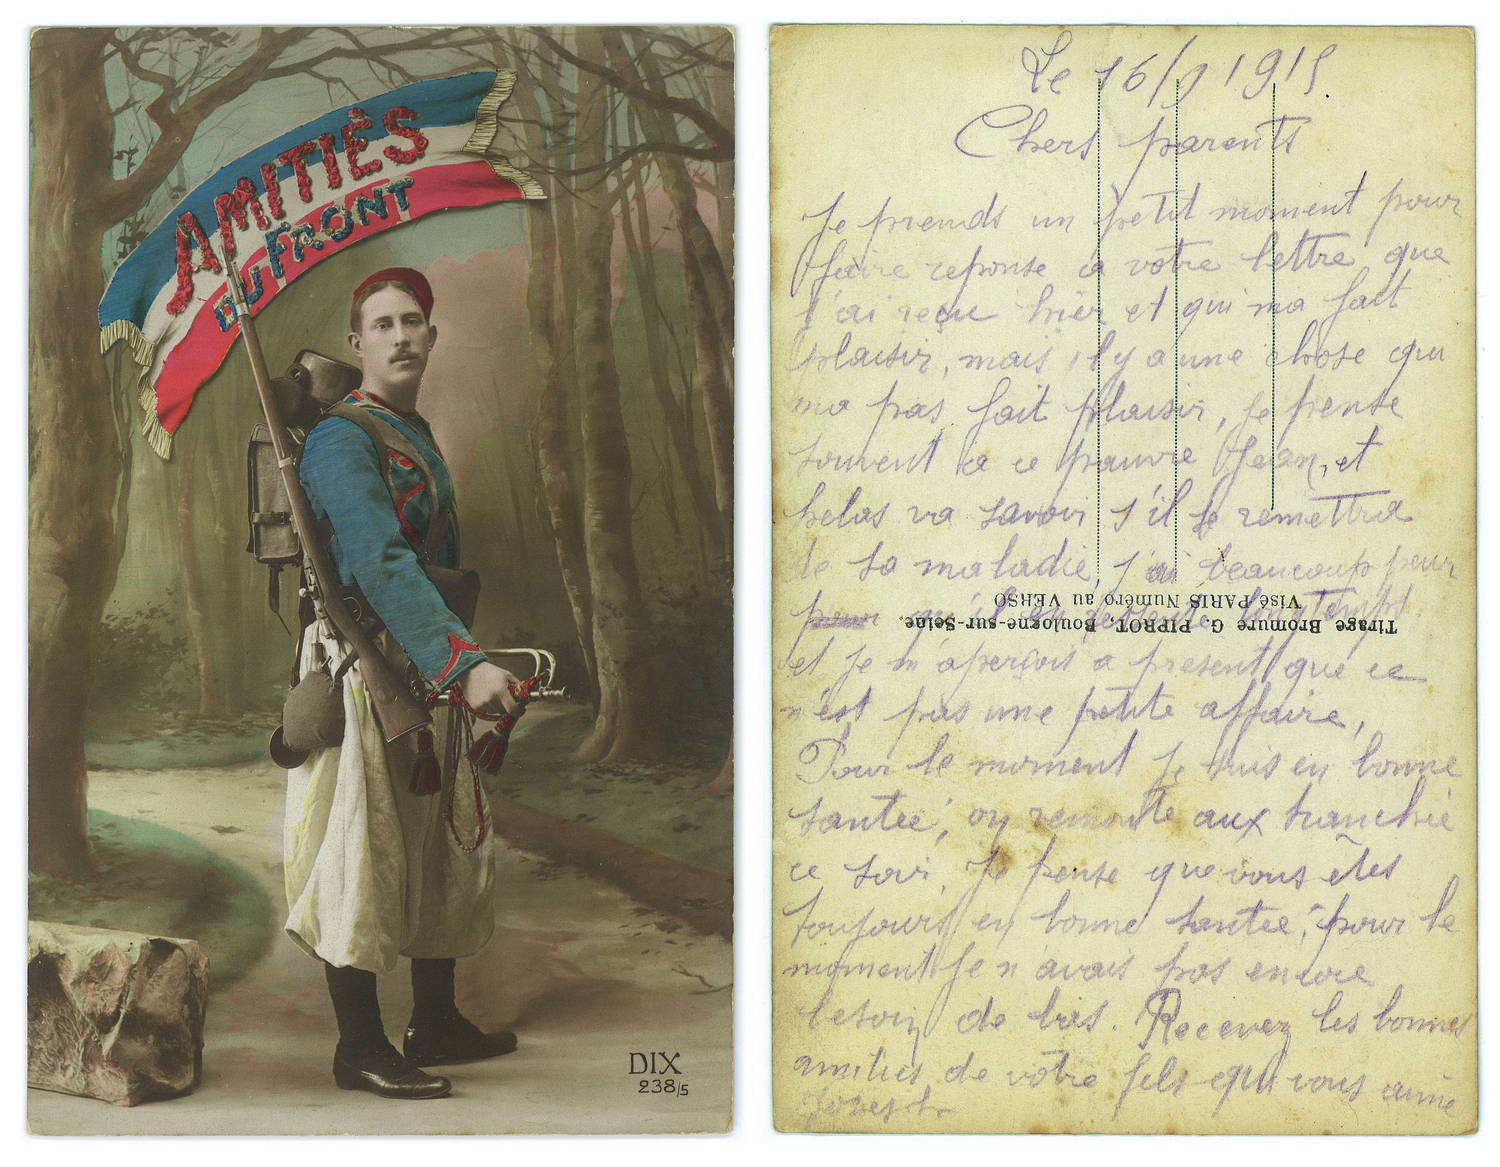 AMITIÈS
DU FRONT
DIX
238/5
Le 16/9 1915.
Chers parents
Je prends un petit moment pour
faire reponse a votre lettre que
j'ai reçu hier et qui ma fait
plaisir, mais il y a une chose qui
ma pas fait plaisir, je pense
souvent a ce pauvre Jean, et
helas va savoir s'il se remettra
de sa maladie, j'ai beaucoup peur
qu'il longtemps.
et je m'aperçois a present que ce
n'est pas une petite affaire,
Pour le moment je suis en bonne
santée, on remonte aux tranchée
ce soir, Je pense que vous êtes
toujours en bonne santée, pour le
moment je n'avais pas encore
besoin de bas. Recevez les bonnes
amities de votre fils qui vous aime
Tirage Bromure G. PIPROT, Boulogne-sur-Seine.
Visé PARIS Numéro au VERSO